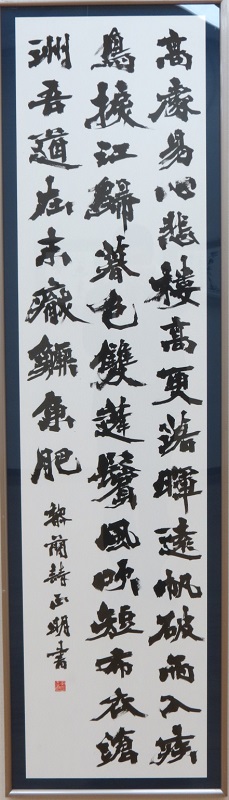 高處易心悲樓高更落暉遠帆破雨入疾
鳥捩江歸暮色雙蓬鬢風吹短布衣滄
洲吾道在未礙鱖魚肥
黎簡詩正明書